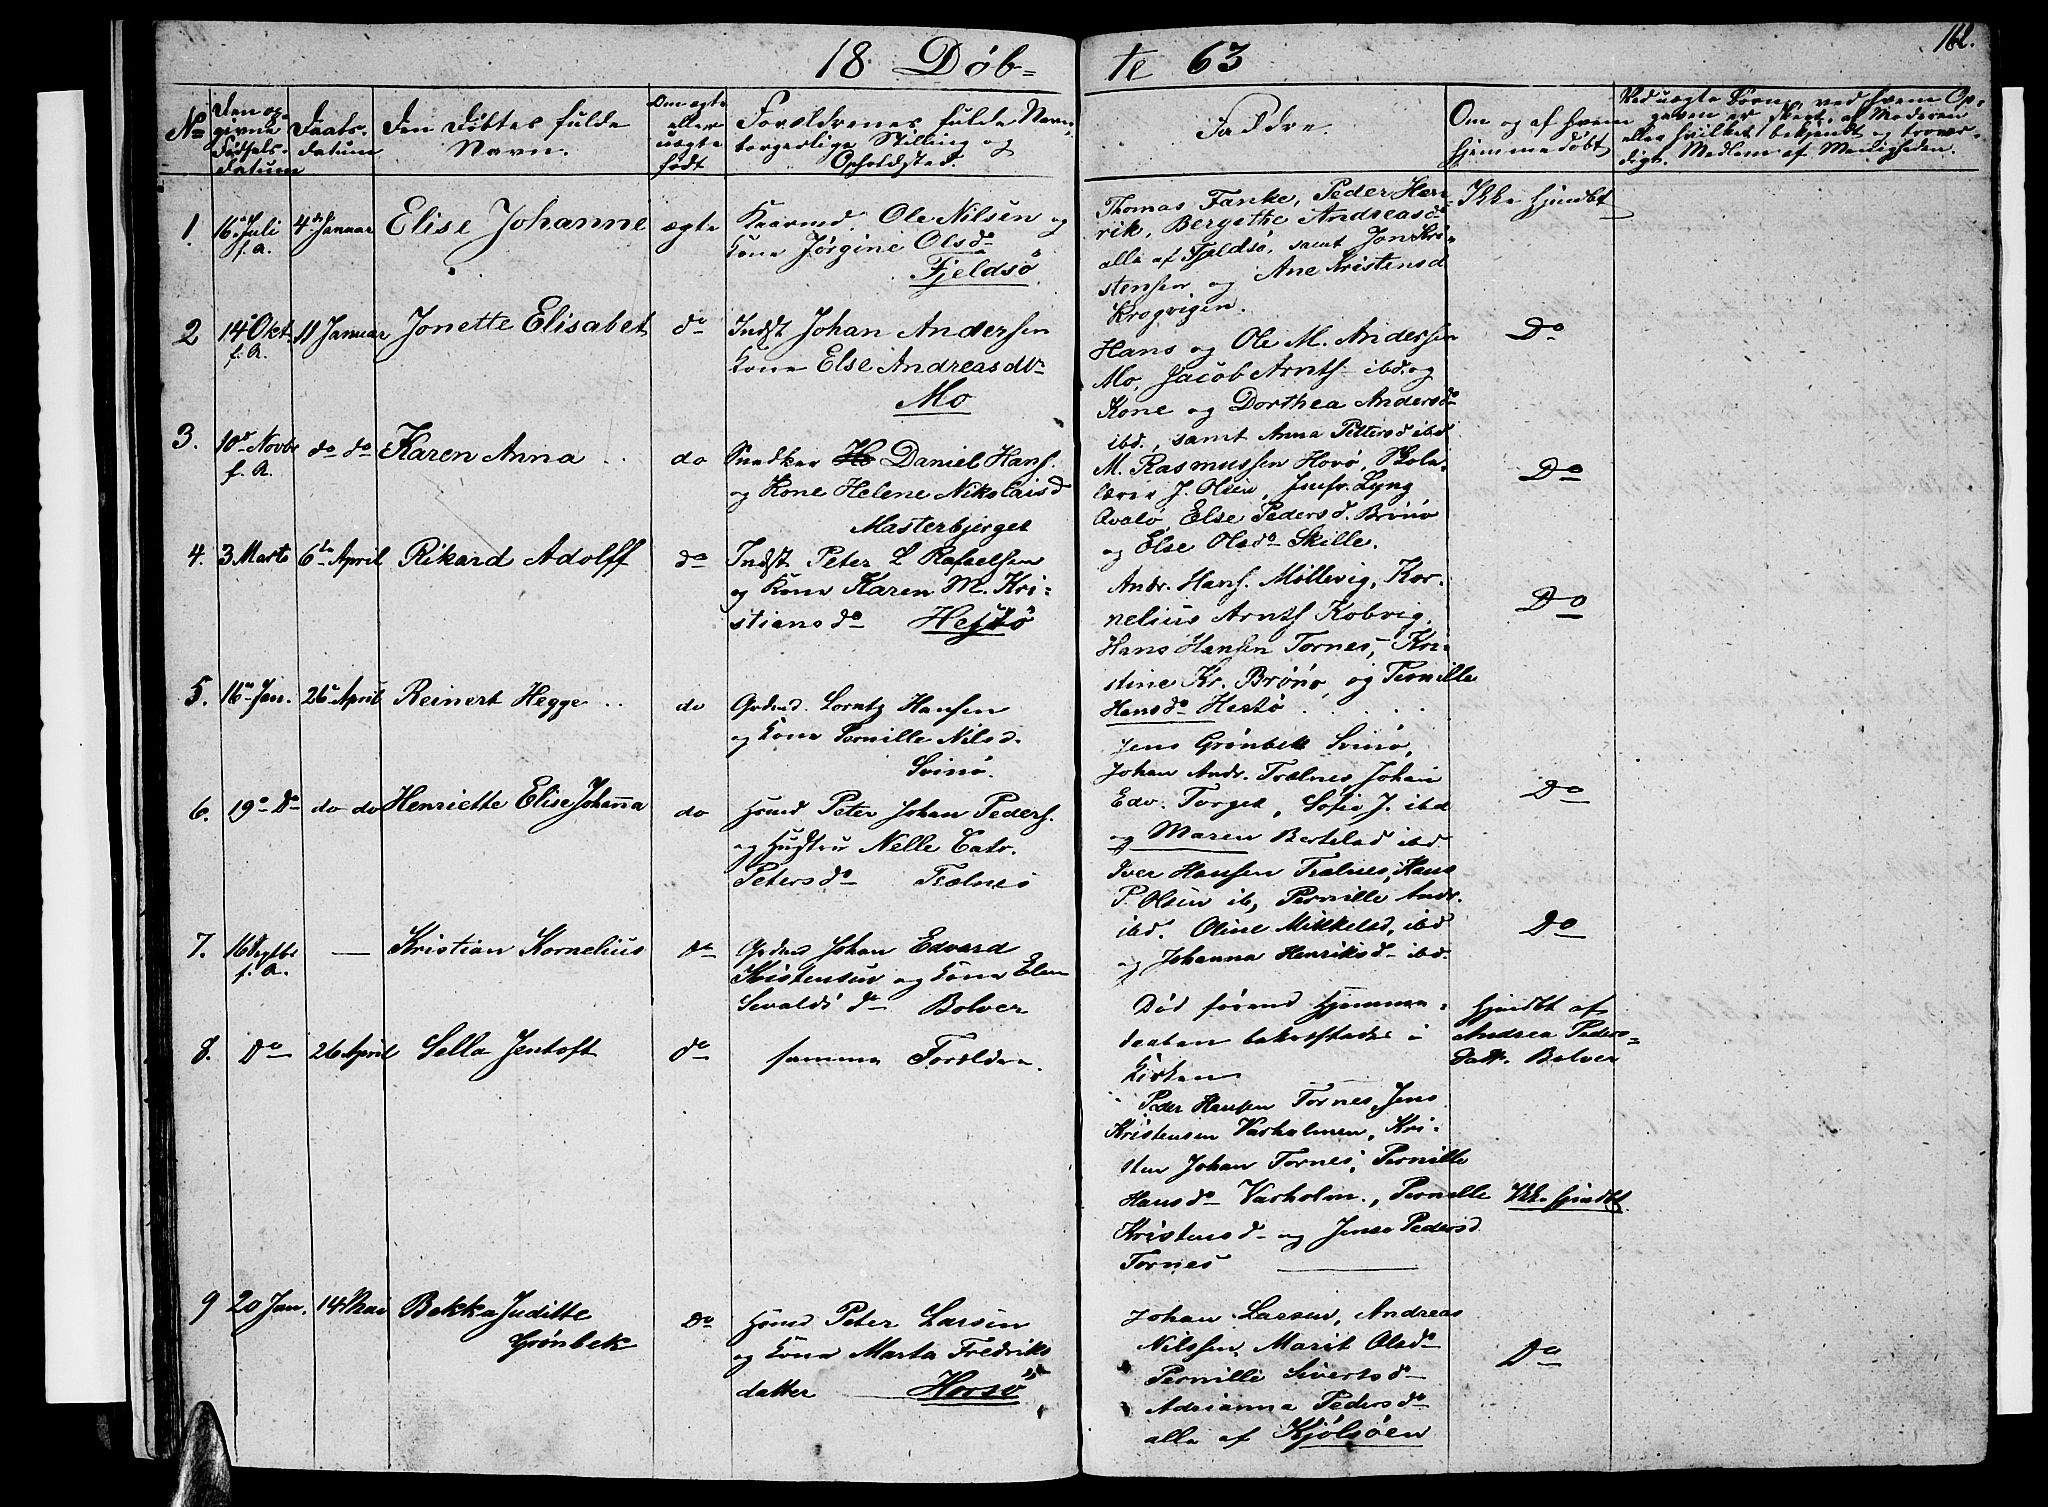 162.
18 Døb-
te 63
No
Den op-
givne
Fødsels-
datum
Daabs-
datum
Den Døbtes fulde
Navn.
Om ægte
eller
uægte
født
Forældrenes fulde Navn,
borgerlige Stilling og
Opholdssted.
Faddre.
Om og af hvem
hjemmedøbt
Ved uægte Børn, ved hvem Op-
gaven er skeet, af Moderen
eller hvilket bekjendt og trovær-
digt Medlem af Menigheden.
1.
16 Juli
f. A.
4de Januar
Elise Johanne
ægte
Ole Nilsen og
Kone Jørgine Olsdo
Fjeldsø.
Thomas Fanke, Peder Hen-
rik, Bergethe Andreasdo
alle af Fjeldsø, samt Jon Kri-
stensen og Ane Kristensd
Krogvigen.
Ikke hjmdbt
2
14 Okt.
f. A.
11 Januar
Jonette Elisabet
do
Indst Johan Andersen
Kone Else Andreasdo
Mo
Hans og Ole M. Andersen
Mo, Jacob Arnts ibd. og
Kone og Dorthea Andersdo
ibd., samt Anna Pettersd ibd
Do
3.
10de Novbr
f. A.
do do
Karen Anna
do
Snedker Daniel Hans.
og Kone Helene Nikolaisd
Masterbjerget
M. Rasmussen Hovø, Skole-
lærer J. Olsen, Jmfr. Lyng
Qvalø, Else Pedersd. Brønø
og Else Olsdo Skille.
Do
4.
3 Marts
6te April
Rikard Adolff
do
Indst Peter L Rafaelsen
og Kone Karen M. Kri-
stiansdo Hestø
Andr. Hans. Møllevig, Kor-
nelius Arnts Kobvig,
Hans Hansen Tornes, Kri-
stine Kr. Brønø, og Pernille
Hansdo Hestø
Do
5.
16 Jan.
26 April
Reinert Hegge
do
Grdmd. Lorntz Hansen
og Kone Pernille Nilsd.
Svinø.
Jens Grønbek Svinø,
Johan Andr. Trælnes, Johan
Edv. Torget, Sofie J. ibd
og Maren Bertelsd ibd
Do
6.
19 Do
do do
Henriette Elise Johanna
do
Hsmd Peter Johan Peders.
og Hustru Nelle Catr.
Petersdo Trælnes
Iver Hansen Trælnes, Hans
P. Olsen ib, Pernille Andr.
ibd. Oline Mikkelsd, ibd
og Johanna Henriksd ibd.
Do
7.
16
f. A.
—
Kristian Kornelius
do
Grdmd Johan Edvard
Kristensen og Kone Elen
Sivaldsdo Bolver
Død førend Hjemme-
daaben bekræftedes i
Kirken
Hjmdbt af
Andrea Peders-
datter Bolver
8.
Do
26 April
Sella Jentoft
do
samme Forældre.
Peder Hansen Tornes, Jens
Kristensen Varholmen, Kri-
sten Johan Tornes, Pernille
Hansdo Varholm., Pernille
Kristensd og Pedersd
Tornes
Ikke hjmdbt
9
20 Jan.
14 Mai
Bekka Juditte
Grønbek
Do
Hsmd Peter Larsen
og Kone Marta Fredriks
datter Horsø
Johan Larsen, Andreas
Nilssen, Marit Olsdo
Pernille Sivertsd
Adrianna Pedersdo
alle af Kjølsøen
Do